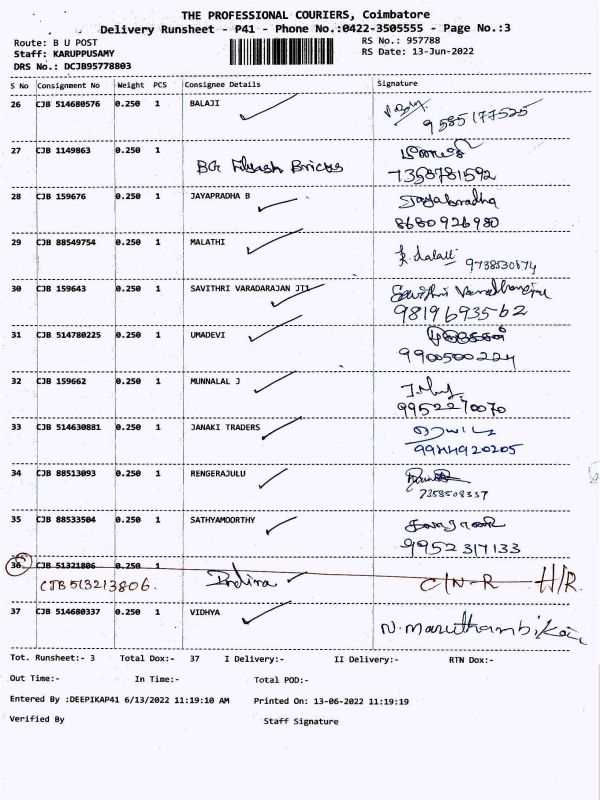 THE PROFESSIONAL COURIERS, Coimbatore
Delivery Runsheet - P41 - Phone No.:0422-3505555 - Page No.:3
Route: B U POST
RS No.: 957788
Staff: KARUPPUSAMY
RS Date: 13-Jun-2022
DRS No.: DCJB95778803
S No Consignment No Weight PCS Consignee Details Signature
26 CJB 514680576 0.250 1 BALAJI
9585177525
27 CJB 1149863 0.250 1
BG Flyash Bricks
7358781592
28 CJB 159676 0.250 1 JAYAPRADHA B Jayabradha
8680926980
29 CJB 88549754 0.250 1 MALATHI
9738530874
30 CJB 159643 0.250 1 SAVITHRI VARADARAJAN JT1 Savithri
9819693562
31 CJB 514780225 0.250 1 UMADEVI
9900500224
32 CJB 159662 0.250 1 MUNNALAL J
9952270070
33 CJB 514630881 0.250 1 JANAKI TRADERS
9944920205
34 CJB 88513093 0.250 1 RENGERAJULU
7358508337
35 CJB 88533504 0.250 1 SATHYAMOORTHY
9952317133
36 CJB 51321806 0.250 1
CJB 513213806. C/N-R H/R
37 CJB 514680337 0.250 1 VIDHYA
N. Maruthambikai
Tot. Runsheet:- 3 Total Dox:- 37 I Delivery:- II Delivery:- RTN Dox:-
Out Time:- In Time:- Total POD:-
Entered By :DEEPIKAP41 6/13/2022 11:19:10 AM Printed On: 13-06-2022 11:19:19
Verified By Staff Signature